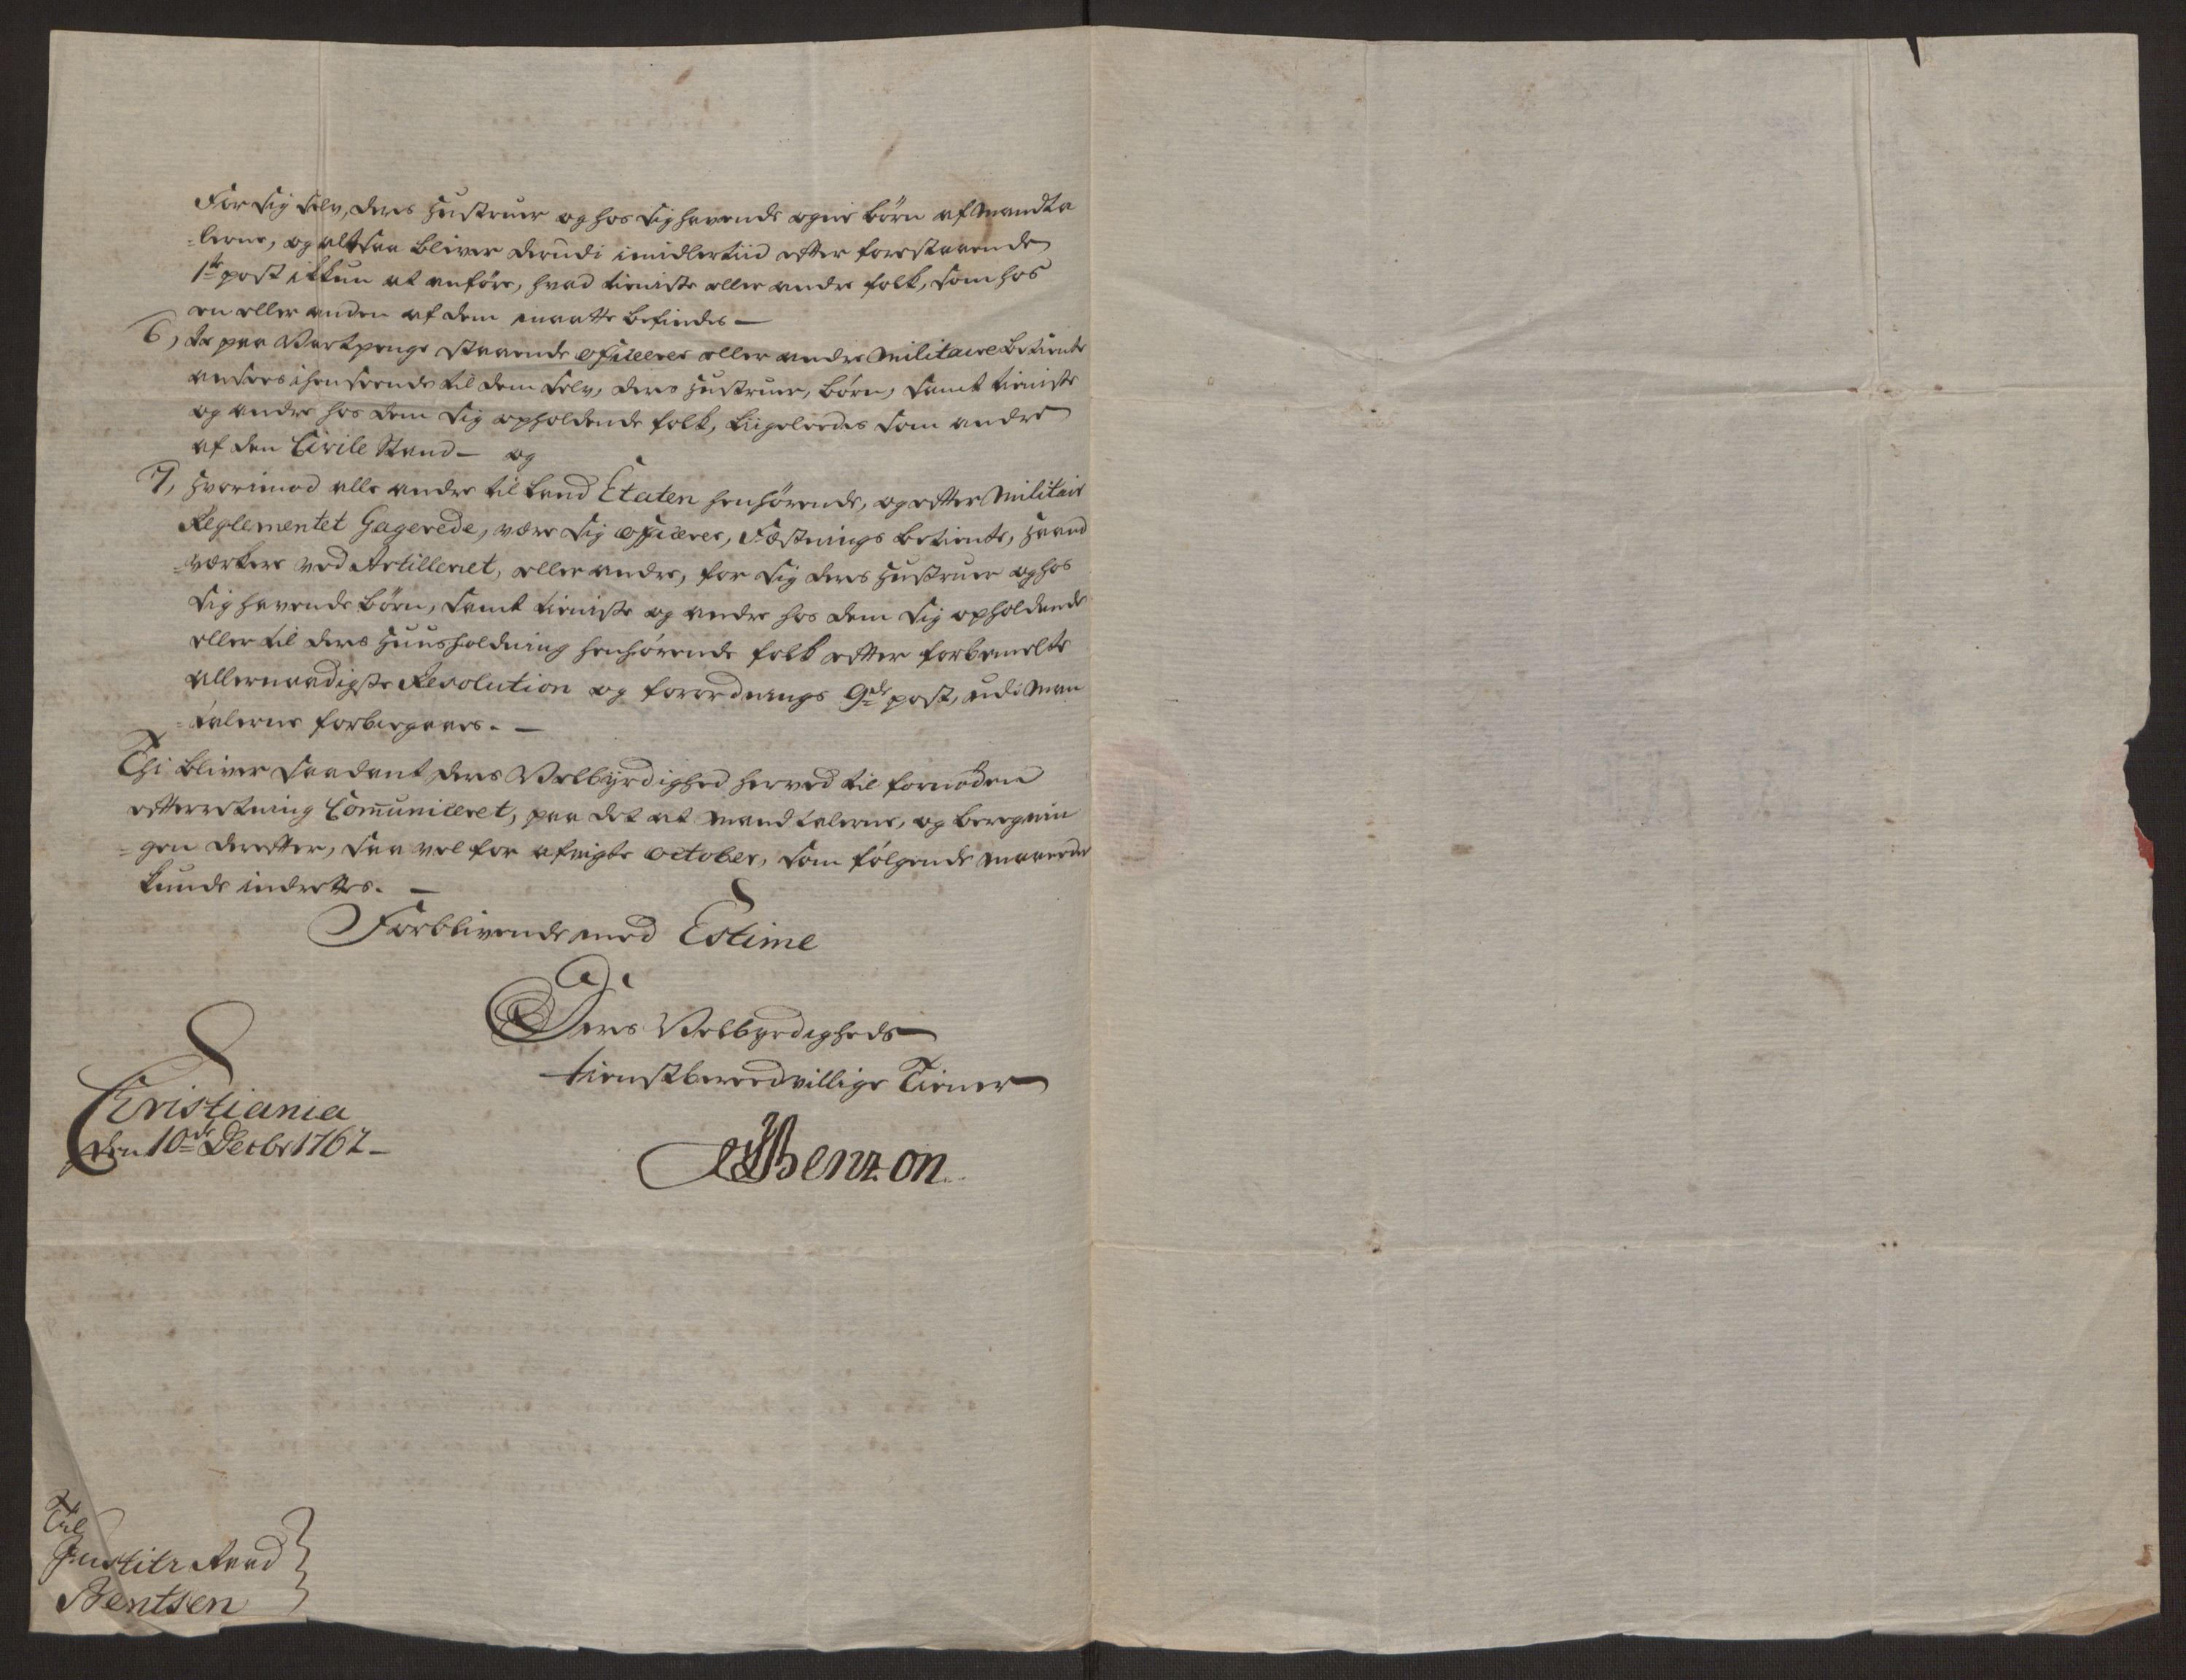 For sig selv, deres Hustruer og hos sig havende egne börn af Mandta
-lerne, og altsaa bliver derudi imidlertiid efter forestaaende
1ste post ikkun at anføre, hvad tieniste eller andre folk, som hos
en eller anden af dem maatte befindes —
6, De paa Vartpenge staaende officerer eller andre Militaire betiente
ansees i henseende til dem selv, deres Hustruer, börn, samt tieniste
og andre hos dem sig opholdende folk, liigeleedes som andre
af den Civile Stand — og
7, Hvorimod alle andre til Land Etaten henhørende, og efter Militair
Reglementet Gagerede, være sig officerer, Fæstnings betiente, Haand
-værkere ved Artilleriet, eller andre, for sig deres Hustruer og hos
sig havende börn, samt tieniste og andre hos dem sig opholdende
eller til deres Huusholdning henhørende folk efter forbemelte
allernaadigste Resolution og forordnings 9de post, udi Man
-talerne forbiegaaes. —
Thi bliver saadant Deres Velbÿrdighed herved til fornøden
efterretning Com̄uniceret, paa det at Mandtalerne, og beregnin
-gen derefter, saa vel for afvigte October, som følgende maaneder
kunde indrettes. —
Forblivende med Estime
Deres Velbyrdigheds
tienstbereedvillige Tiener
Christiania
den 10de Decbr 1762 —
Benzon
Til
Justitz Raad
Bentsen